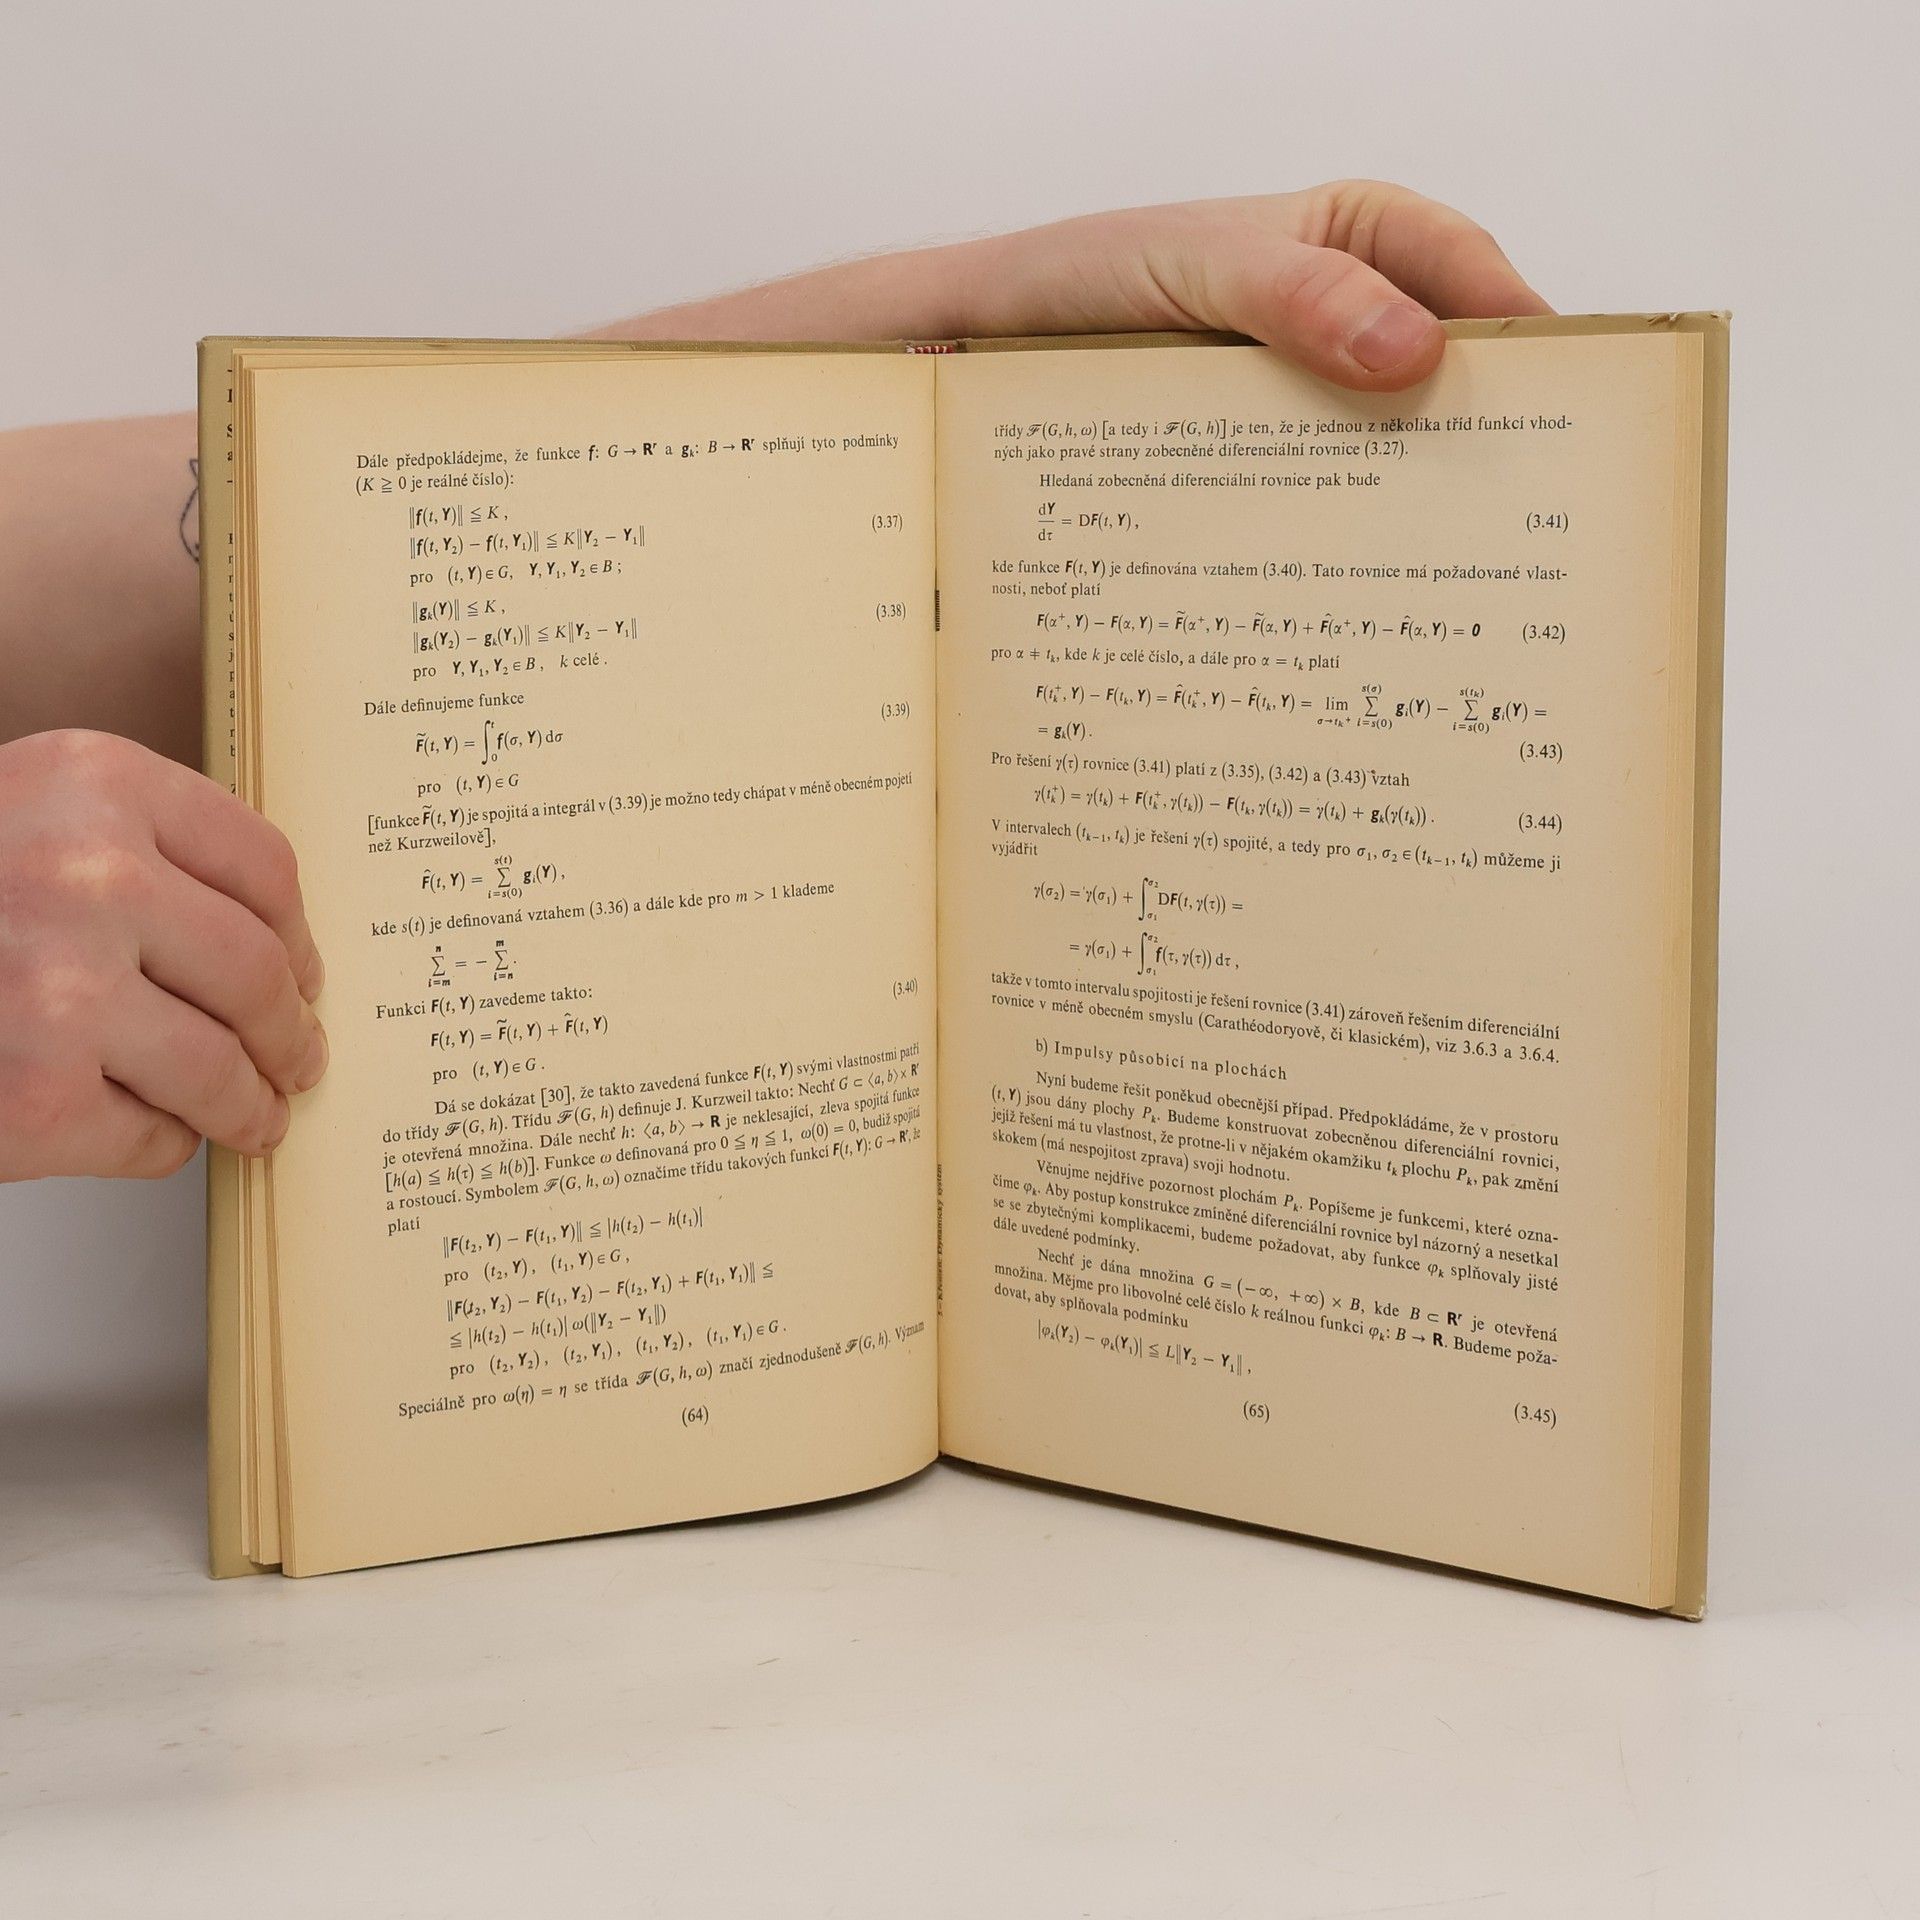 Dále předpokládejme, že funkce f: G → Rʳ a gₖ: B → Rʳ splňují tyto podmínky
(K ≧ 0 je reálné číslo):
‖f(t, Y)‖ ≦ K ,
(3.37)
‖f(t, Y₂) − f(t, Y₁)‖ ≦ K‖Y₂ − Y₁‖
pro (t, Y) ∈ G, Y, Y₁, Y₂ ∈ B ;
‖gₖ(Y)‖ ≦ K ,
(3.38)
‖gₖ(Y₂) − gₖ(Y₁)‖ ≦ K‖Y₂ − Y₁‖
pro Y, Y₁, Y₂ ∈ B , k celé .
Dále definujeme funkce
(3.39)
F̃(t, Y) = ∫₀ᵗ f(σ, Y) dσ
pro (t, Y) ∈ G
[funkce F̃(t, Y) je spojitá a integrál v (3.39) je možno tedy chápat v méně obecném pojetí
než Kurzweilově],
F̂(t, Y) = ∑_{i=s(0)}^{s(t)} gᵢ(Y) ,
kde s(t) je definovaná vztahem (3.36) a dále kde pro m > 1 klademe
∑_{i=m}^{n} = − ∑_{i=n}^{m} .
Funkci F(t, Y) zavedeme takto:
(3.40)
F(t, Y) = F̃(t, Y) + F̂(t, Y)
pro (t, Y) ∈ G .
Dá se dokázat [30], že takto zavedená funkce F(t, Y) svými vlastnostmi patří
do třídy ℱ(G, h). Třídu ℱ(G, h) definuje J. Kurzweil takto: Nechť G ⊂ ⟨a, b⟩ × Rʳ
je otevřená množina. Dále nechť h: ⟨a, b⟩ → R je neklesající, zleva spojitá funkce
[h(a) ≦ h(τ) ≦ h(b)]. Funkce ω definovaná pro 0 ≦ η ≦ 1, ω(0) = 0, budiž spojitá
a rostoucí. Symbolem ℱ(G, h, ω) označíme třídu takových funkcí F(t, Y): G → Rʳ, že
platí
‖F(t₂, Y) − F(t₁, Y)‖ ≦ |h(t₂) − h(t₁)|
pro (t₂, Y) , (t₁, Y) ∈ G ,
‖F(t₂, Y₂) − F(t₁, Y₂) − F(t₂, Y₁) + F(t₁, Y₁)‖ ≦
≦ |h(t₂) − h(t₁)| ω(‖Y₂ − Y₁‖)
pro (t₂, Y₂) , (t₂, Y₁) , (t₁, Y₂) , (t₁, Y₁) ∈ G .
Speciálně pro ω(η) = η se třída ℱ(G, h, ω) značí zjednodušeně ℱ(G, h). Význam
(64)
třídy ℱ(G, h, ω) [a tedy i ℱ(G, h)] je ten, že je jednou z několika tříd funkcí vhod-
ných jako pravé strany zobecněné diferenciální rovnice (3.27).
Hledaná zobecněná diferenciální rovnice pak bude
dY/dτ = DF(t, Y) , (3.41)
kde funkce F(t, Y) je definována vztahem (3.40). Tato rovnice má požadované vlast-
nosti, neboť platí
F(α⁺, Y) − F(α, Y) = F̃(α⁺, Y) − F̃(α, Y) + F̂(α⁺, Y) − F̂(α, Y) = 0 (3.42)
pro α ≠ tₖ, kde k je celé číslo, a dále pro α = tₖ platí
F(tₖ⁺, Y) − F(tₖ, Y) = F̂(tₖ⁺, Y) − F̂(tₖ, Y) = lim_{σ→tₖ⁺} ∑_{i=s(0)}^{s(σ)} gᵢ(Y) − ∑_{i=s(0)}^{s(tₖ)} gᵢ(Y) =
= gₖ(Y) .
(3.43)
Pro řešení γ(τ) rovnice (3.41) platí z (3.35), (3.42) a (3.43) vztah
γ(tₖ⁺) = γ(tₖ) + F(tₖ⁺, γ(tₖ)) − F(tₖ, γ(tₖ)) = γ(tₖ) + gₖ(γ(tₖ)) . (3.44)
V intervalech (tₖ₋₁, tₖ) je řešení γ(τ) spojité, a tedy pro σ₁, σ₂ ∈ (tₖ₋₁, tₖ) můžeme ji
vyjádřit
γ(σ₂) = γ(σ₁) + ∫_{σ₁}^{σ₂} DF(t, γ(τ)) =
= γ(σ₁) + ∫_{σ₁}^{σ₂} f(τ, γ(τ)) dτ ,
takže v tomto intervalu spojitosti je řešení rovnice (3.41) zároveň řešením diferenciální
rovnice v méně obecném smyslu (Carathéodoryově, či klasickém), viz 3.6.3 a 3.6.4.
b) Impulsy působící na plochách
Nyní budeme řešit poněkud obecnější případ. Předpokládáme, že v prostoru
(t, Y) jsou dány plochy Pₖ. Budeme konstruovat zobecněnou diferenciální rovnici,
jejíž řešení má tu vlastnost, že protne-li v nějakém okamžiku tₖ plochu Pₖ, pak změní
skokem (má nespojitost zprava) svoji hodnotu.
Věnujme nejdříve pozornost plochám Pₖ. Popíšeme je funkcemi, které ozna-
číme φₖ. Aby postup konstrukce zmíněné diferenciální rovnice byl názorný a nesetkal
se se zbytečnými komplikacemi, budeme požadovat, aby funkce φₖ splňovaly jisté
dále uvedené podmínky.
Nechť je dána množina G = (−∞, +∞) × B, kde B ⊂ Rʳ je otevřená
množina. Mějme pro libovolné celé číslo k reálnou funkci φₖ: B → R. Budeme poža-
dovat, aby splňovala podmínku
|φₖ(Y₂) − φₖ(Y₁)| ≦ L‖Y₂ − Y₁‖ ,
(3.45)
(65)